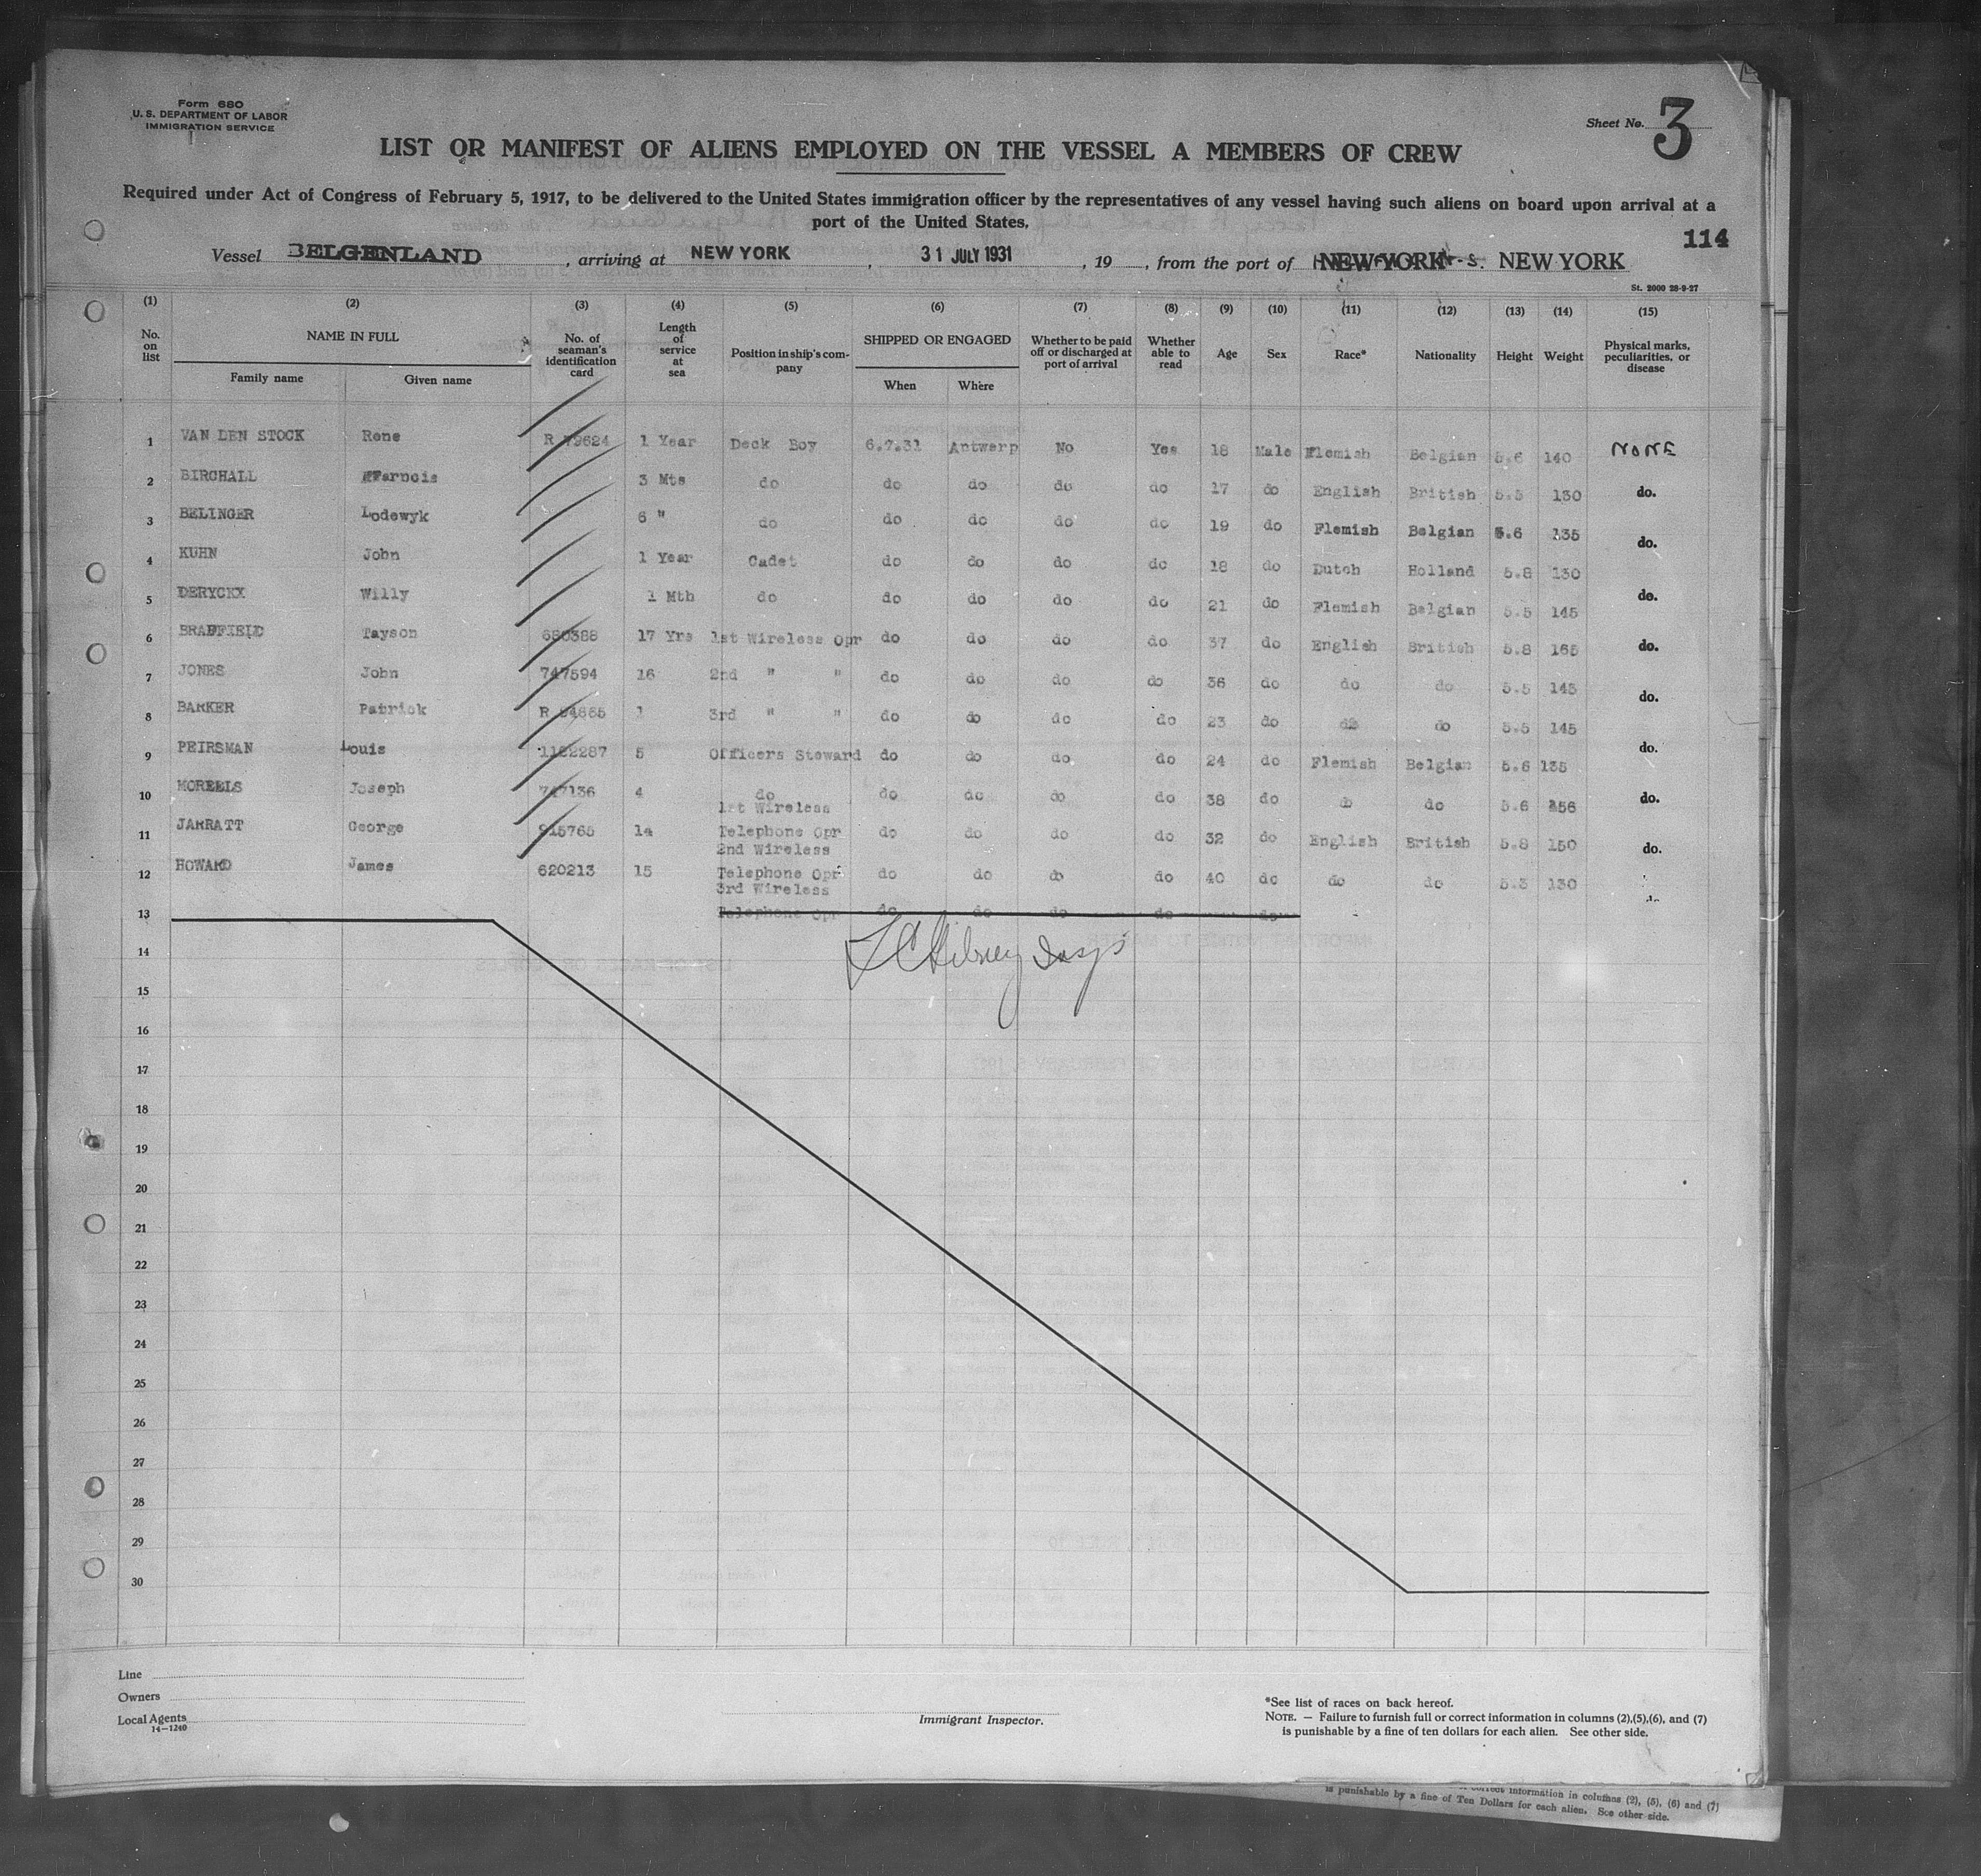 Form 680
U. S. DEPARTMENT OF LABOR
IMMIGRATION SERVICE
Sheet No. 3
LIST OR MANIFEST OF ALIENS EMPLOYED ON THE VESSEL A MEMBERS OF CREW
Required under Act of Congress of February 5, 1917, to be delivered to the United States immigration officer by the representatives of any vessel having such aliens on board upon arrival at a
port of the United States,
114
Vessel BELGENLAND, arriving at NEW YORK, 31 JULY 1931, 19, from the port of NEW YORK NEW YORK
St. 2000 28-9-27
(1) (2) (3) (4) (5) (6) (7) (8) (9) (10) (11) (12) (13) (14) (15)
No. on list NAME IN FULL Family name Given name No. of seaman's identification card Length of service at sea Position in ship's company SHIPPED OR ENGAGED When Where Whether to be paid off or discharged at port of arrival Whether able to read Age Sex Race* Nationality Height Weight Physical marks, peculiarities, or disease
1 VAN DEN STOCK Rene 1 Year Deck Boy 6.7.31 Antwerp No Yes 18 Male Flemish Belgian 5.6 140 NONE
2 BIRCHALL 3 Mts do do do do do 17 do English British 5.5 130 do.
3 BELINGER Lodewyk 6 " do do do do do 19 do Flemish Belgian 5.6 135 do.
4 KUHN John 1 Year Cadet do do do do 18 do Dutch Holland 5.8 130
5 DERYCKX Willy 1 Mth do do do do do 21 do Flemish Belgian 5.5 145 do.
6 BRADFIELD Tayson 680388 17 Yrs 1st Wireless Opr do do do do 37 do English British 5.8 165 do.
7 JONES John 747594 16 2nd " " do do do do 36 do do do 5.5 145 do.
8 BARKER Patrick 1 3rd " " do do do do 23 do do do 5.5 145
9 PEIRSMAN Louis 1122287 5 Officers Steward do do do do 24 do Flemish Belgian 5.6 135 do.
10 MOREELS Joseph 747136 4 do do do do do 38 do do 5.6 156 do.
1st Wireless
11 JARRATT George 915765 14 Telephone Opr do do do do 32 do English British 5.8 150 do.
2nd Wireless
12 HOWARD James 620213 15 Telephone Opr do do do do 40 do do do 5.3 130
3rd Wireless
13 Telephone Opr do do do do do
14
15
16
17
18
19
20
21
22
23
24
25
26
27
28
29
30
Line
Owners
Local Agents
14—1240
Immigrant Inspector.
*See list of races on back hereof.
NOTE. — Failure to furnish full or correct information in columns (2),(5),(6), and (7)
is punishable by a fine of ten dollars for each alien. See other side.
correct information in columns (2), (5), (6) and (7)
is punishable by a fine of Ten Dollars for each alien. See other side.